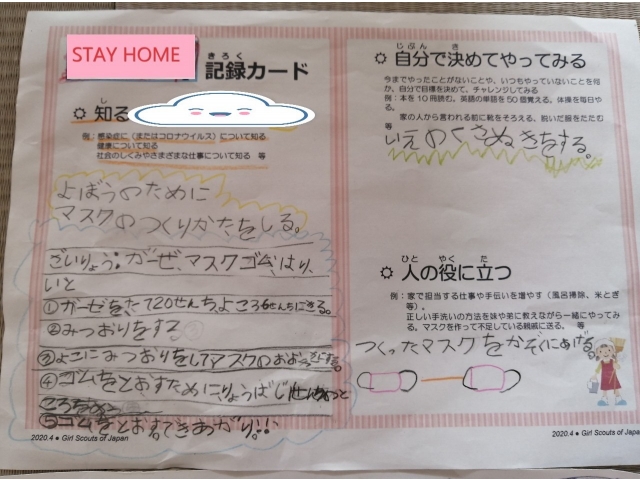 STAY HOME
きろく
記録カード
し
知る
例：感染症に（またはコロナウイルス）について知る
健康について知る
社会のしくみやさまざまな仕事について知る 等
よぼうのために
マスクのつくりかたをしる。
ざいりょう:ガーゼ、マスクゴム、はり、
いと
①ガーゼをたて20せんちよころ6せんちにきる。
②みつおりをする
③よこにみつおりをしてマスクのおおきさにする。
④ゴムをとおすために、りょうはじ
ところ
⑤ゴムをとおすてきあがり!!
2020.4 ● Girl Scouts of Japan
じぶん き
自分で決めてやってみる
今までやったことがないことや、いつもやっていないことを何
か、自分で目標を決めて、チャレンジしてみる
例：本を10冊読む。英語の単語を50個覚える。体操を毎日や
る。
家の人から言われる前に靴をそろえる。脱いだ服をたたむ
等
いえのくさぬきをする。
ひと やく た
人の役に立つ
例：家で担当する仕事や手伝いを増やす（風呂掃除、米とぎ
等）。
正しい手洗いの方法を妹や弟に教えながら一緒にやってみ
る。マスクを作って不足している親戚に送る。 等
つくったマスクをかぞくにあげる。
2020.4 ● Girl Scouts of Japan